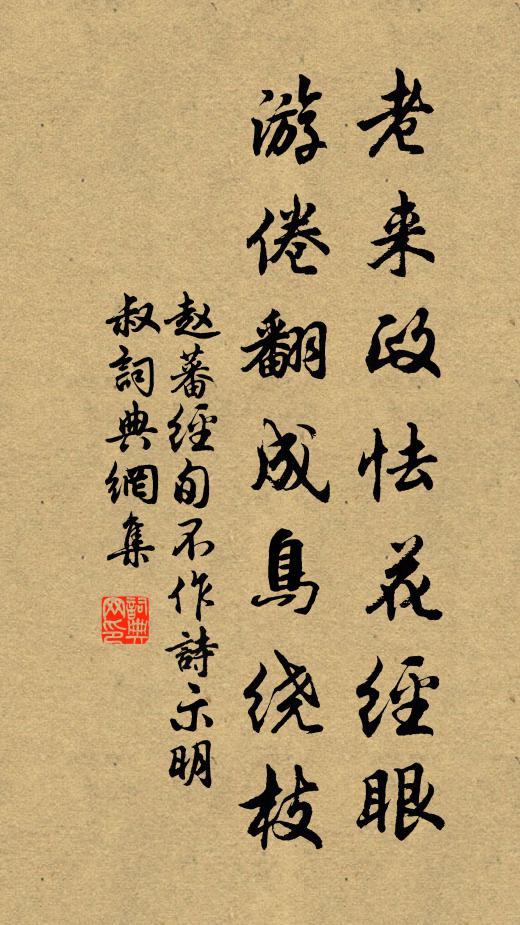 老来政怯花经眼
游倦翻成鳥绕枝
赵蕃經旬不作詩示明
叔詞典網集
詞典网印